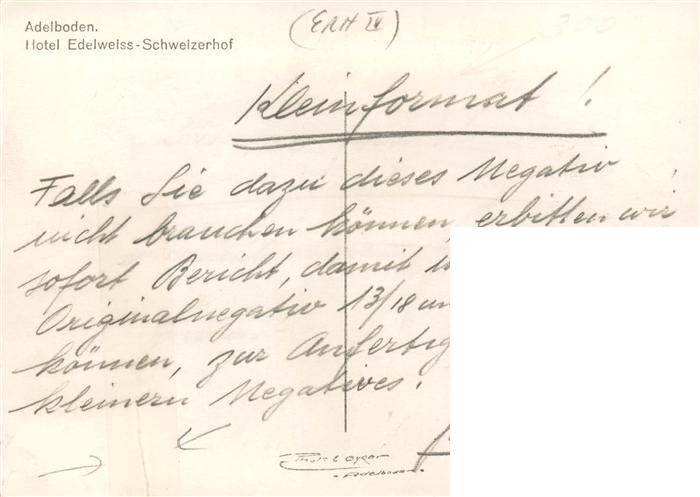 Adelboden.
Hotel Edelweiss-Schweizerhof
(ERH IV)
Kleinformat!
Falls Sie dazu dieses Negativ
nicht brauchen können, erbitten wir
sofort Bericht, damit
Originalnegativ 13/18
können, zur
kleinern Negatives.
Adelboden.